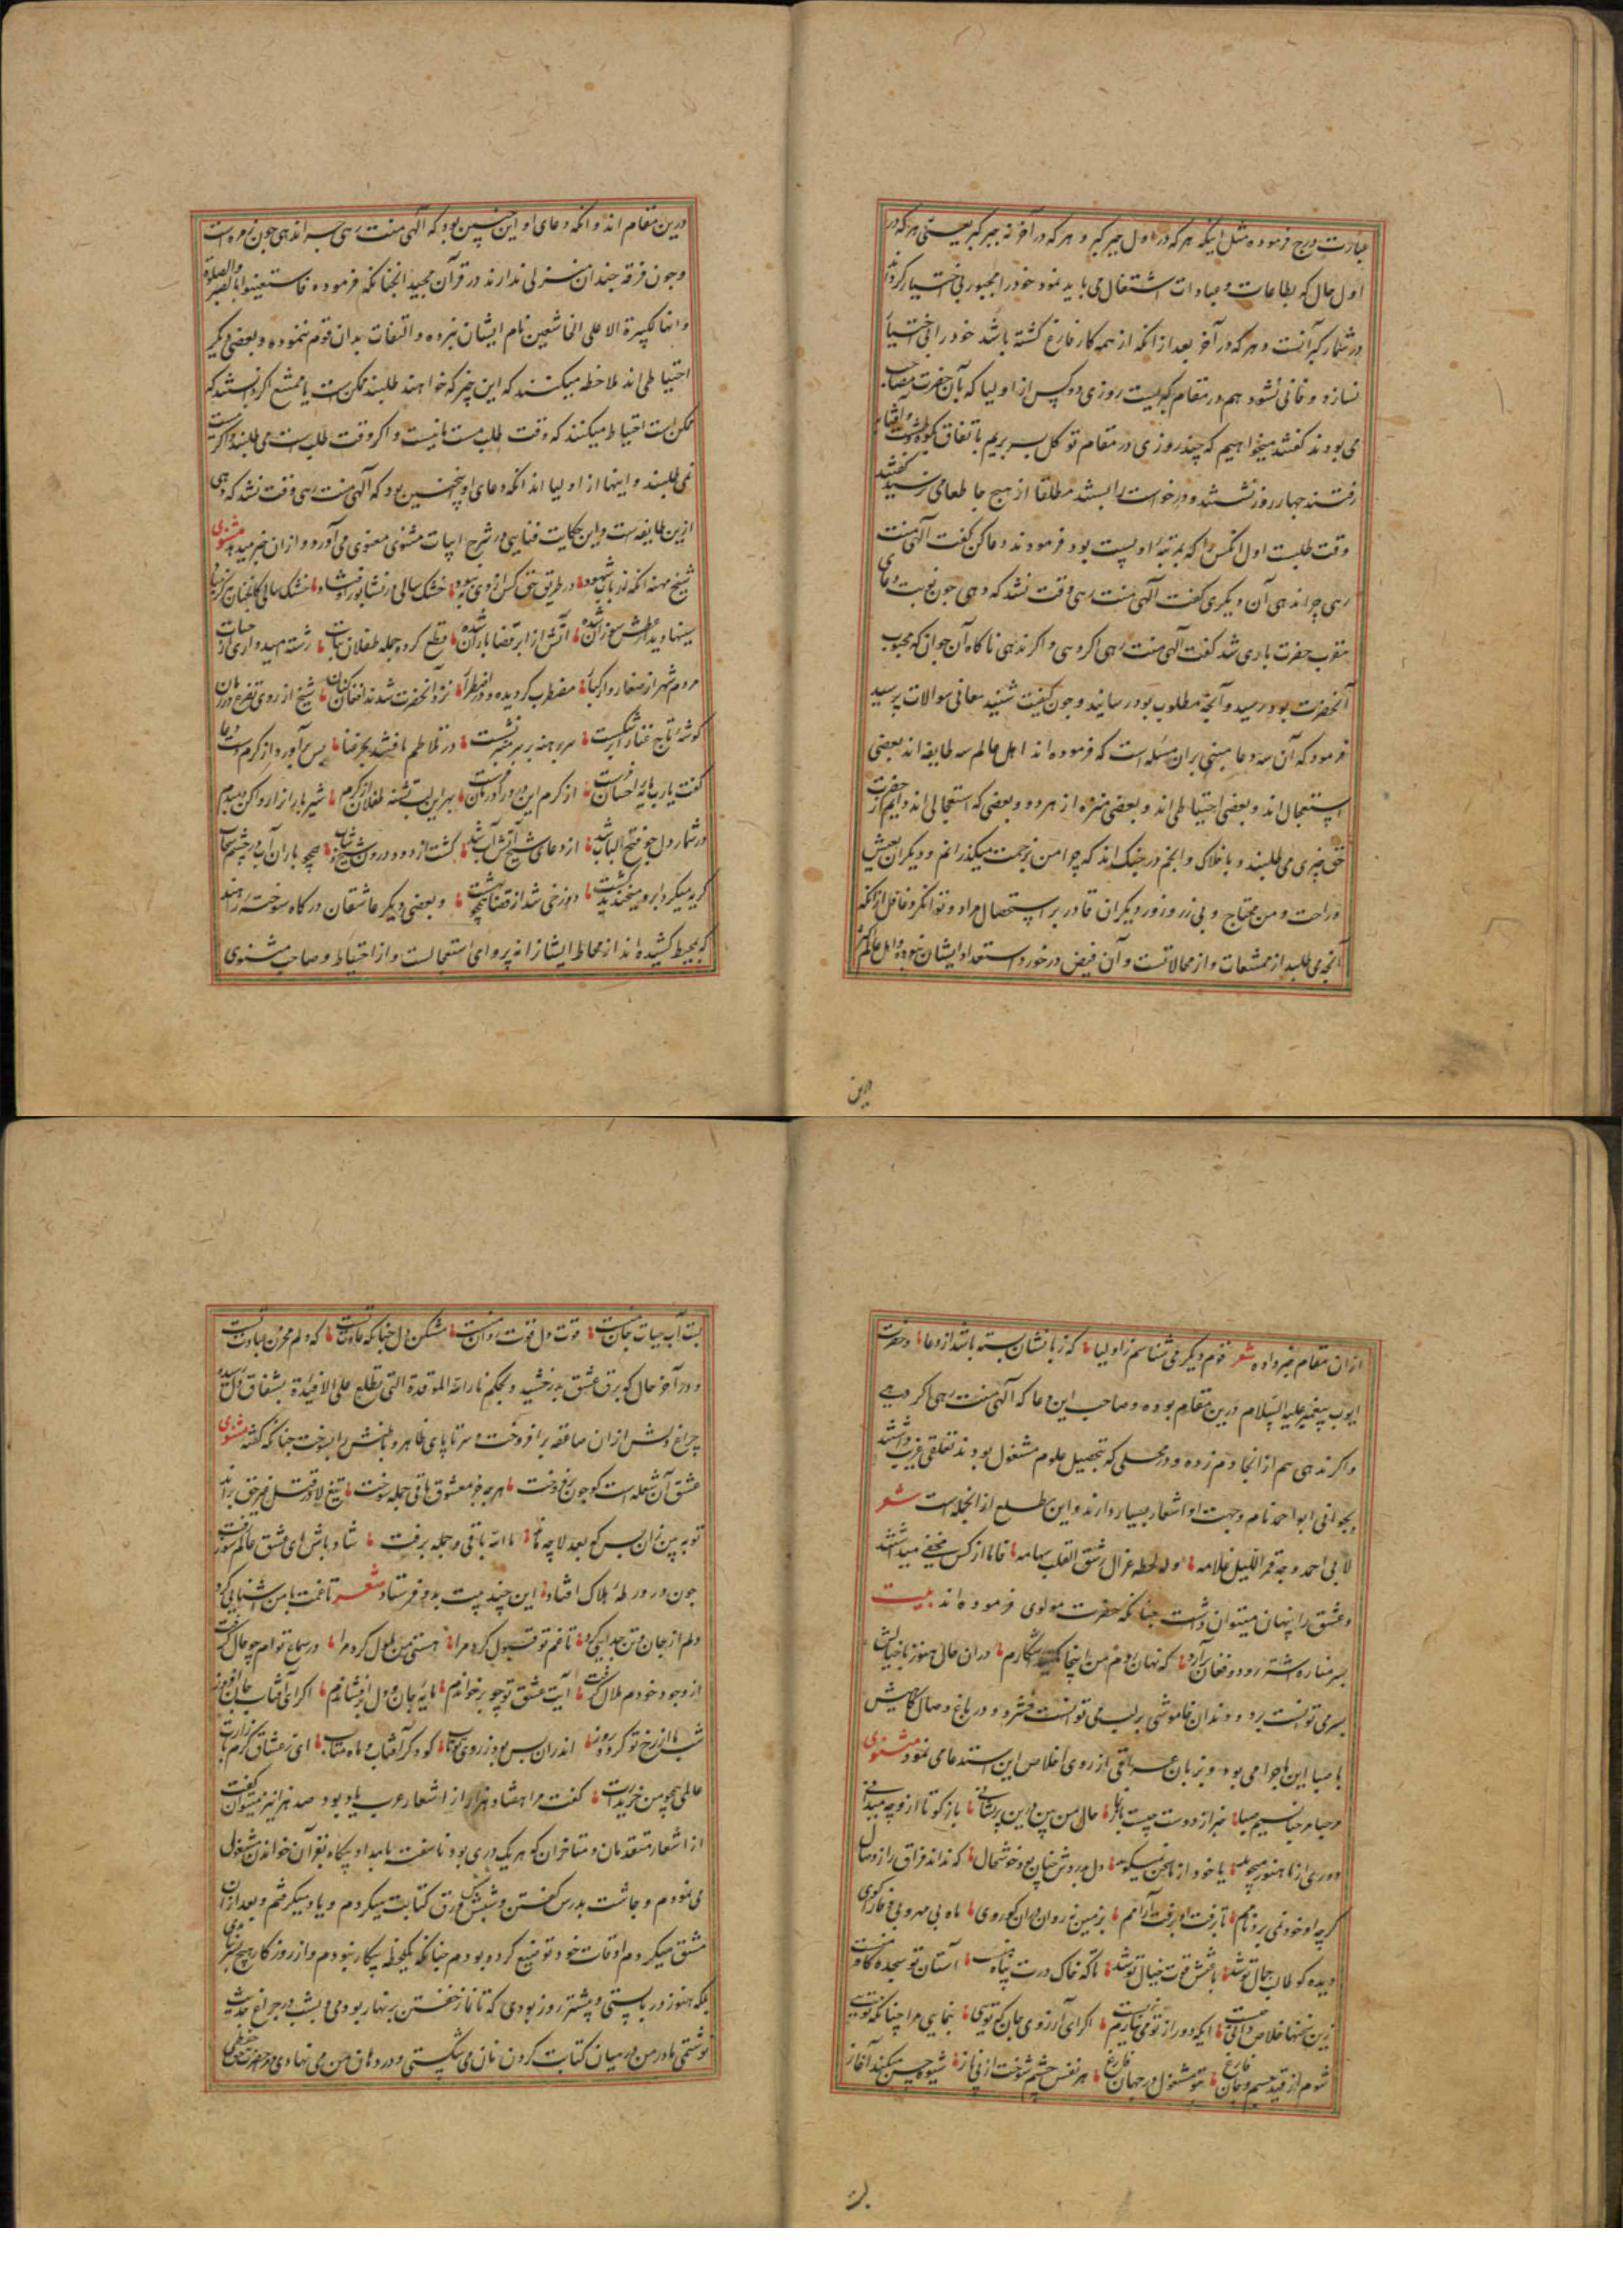 عبارت درج فرموده مثل اینکه هر که در اول جبر گبر و هر که در آخر نه جبر گبر یعنی هر که در
اول حال که بطاعات و عبادات اشتغال می باید نمود خود را مجبور بی اختیار گرداند
در شمار گبرانست و هر که در آخر بعد از انکه از همه کار فارغ گشته باشد خود را بی اختیار
نسازد و فانی نشود هم در مقام گبریست روزی دو کس از اولیا که بآن حضرت مصاحب
می بودند گفتند میخواهیم که چند روزی در مقام توکل بسر بریم باتفاق بکوه
رفتند چهار روز نشستند و در خواست را بستند مطلقا از هیچ جا طعامی نرسید گفتند
وقت طلبست اول انکس را که بمرتبه او پست بود فرمودند دعا کن گفت الهی منت
رهی چرا ندهی آن دیگری گفت الهی منت رهی وقت نشد که دهی چون نوبت دعای
مقرب حضرت باری شد گفت الهی منت رهی اگر دهی و اگر ندهی ناگاه آن جوان که محبوب
آنحضرت بود رسید و آنچه مطلوب بود رسانید و چون کیفیت شنید معانی سوالات پرسید
فرمود که آن سه دعا مبنی بران مسئله است که فرموده اند اهل عالم سه طایفه اند بعضی
استعجال اند و بعضی احتیاطی اند و بعضی منزه از هر دو و بعضی که استعجالی اند دایم از حضرت
حق چیزی می طلبند و با فلاک و انجم در جنک اند که چرا من بزحمت میکذرانم و دیگران بعیش
و راحت و من محتاج و بی زر و زور دیگران قادر بر استحصال مراد و توانگر و غافل از انکه
آنچه می طلبد از ممتنعات و از محالاتست و آن فیض در خور استعداد ایشان نبوده و اهل عالم اکثر
درین
درین مقام اند و انکه دعای او این چنین بود که الهی منت رهی چرا ندهی چون زمره است
و چون فرقه چندان منزلی ندارند در قرآن مجید انچنانکه فرموده فاستعینوا بالصبر والصلوة
و انها لکبیرة الا علی الخاشعین نام ایشان نبرده و التفات بدان قوم ننموده و بعضی دیگر
احتیاطی اند ملاحظه میکنند که این چیز که خواهند طلبند ممکن ست یا ممتنع اگر دانستند که
ممکن است احتیاط میکنند که وقت طلب هست یا نیست و اگر وقت طلب ست می طلبند و اگر نیست
نمی طلبند و اینها از اولیا اند انکه دعای او اینچنین بود که الهی منت رهی وقت نشد که دهی
ازین طایفه ست و این حکایت فنایی در شرح ابیات مثنوی معنوی می آورد و از ان خبر میدهد مثنوی
شیخ مهنه انکه ز ارباب شهود در طریق حق کس از وی به نبود خشک سالی در نشابور اوفتاد خشک سالی
سینها دید از عطش سوزان شده آتش از ابر قضا باران شده قطع کرده جمله طفلان نبات رشته امیدواری از حیات
مردم شهر از صغار و از کبار مضطرب گردیده و در اضطرار نزد آنحضرت شدند افغان کنان شیخ از روی تضرع در زمان
گوشه تاج عنار ابر شکست سر برهنه بر سر منبر نشست در تلاطم یافتند بحر رضا پس برآورد از کرم دست دعا
گفت یا رب مایه احسان تست از کرم این درد را درمان تست بهر این لب تشنه طفلان از کرم شیر باران را
در شمار دل چو فتح الباب شد از دعای شیخ آتش آب شد گشت از دود درون شیخ و شاب همچو باران آب در چشم سحاب
گریه میکرد ابر و میخندید کشت دوزخی شد از قضا همچو بهشت و بعضی دیگر عاشقان درگاه سوخته
که بمحیط کشیده اند از محاط ایشانرا نه پروای استعجالست و از احتیاط و صاحب مثنوی
از ان مقام خبر داده شعر قوم دیگر می شناسم ز اولیا که زبانشان بسته باشد از دعا و حضرت
ایوب پیغمبر علیه السلام درین مقام بوده و صاحب این دعا که الهی منت رهی اگر دهی
و اگر ندهی هم از انجا دم زده و در محلی که بتحصیل علوم مشغول بودند تعلقی غریب داشتند
بجوانی ابو احمد نام و جهت او اشعار بسیار دارند و این مطلع از انجمله است شعر
لابی احمد وجه قمر اللیل غلامه و له لحظه غزال رشق القلب سهامه قالا از کس مخفی میداشتند
و عشق را پنهان میتوان داشت چنانکه حضرت مولوی فرموده اند بیت
بسر مناره اشتر رود و فغان برآرد که نهان شدم من اینجا مکنید آشکارم در ان حالی هنوز با خیالش
بسر می توانست برد و دندان خاموشی بر لب می توانست فشرد و در باغ وصال گاهیش
با صبا این ماجرا می بود و بزبان عراقی از روی اخلاص این استدعا می نمود مثنوی
مرحبا مرحبا نسیم صبا خبر از دوست چیست باز نما حال من بین درین پریشانی باز گو تا ازو چه میدانی
دوری از ما هنوز میجوید یا خود از ما سخن نمیگوید دل بدردش چنان بود خوشحال که نداند فراق را ز وصال
گرچه او خود نمی برد نامم تا برفت او برفت آرامم بر زمین نه روان دران کو روی ماه بی مهر و بی وفا را گوی
دیده کو طالب جمال تو شد با غمش قوت خیال تو شد تا که خاک درت پناه منست آستان تو سجده گاه منست
زین سخنها خلاص دانی چیست ایکه دور از تو می نیارم زیست اگر ای آرزوی جان که تویی بنمایی مرا چنانکه تویی
شوم از قید جسم و جان فارغ بتو مشغول و در جهان فارغ هر نفس چشم شوخت از پی ناز شیوه حسن میکند آغاز
لبت
لبت آب حیات جان منست قوت دل قوت روان منست مشکن دل چنانکه عادت تست که دلم مخزن عبادت تست
و در آخر حال کو برق عشق بدرخشید و بحکم نار الله الموقدة التی تطلع علی الافئدة بشغاف دل رسیده
چراغ دلش از ان صاعقه برافروخت و سر تا پای ظاهر و باطنش را بسوخت چنانکه گفته مثنوی
عشق آن شعله است کو چون برفروخت هر چه جز معشوق باقی جمله سوخت تیغ لا در قتل غیر حق براند
تو ببین زان پس که بعد لا چه ماند ماند الا الله باقی و جمله برفت شاد باش ای عشق عالم سوز رفت
چون در ورطه هلاک افتاد این چند بیت بدو فرستاد شعر تا غمت با من آشنایی کرد
دلم از جان و تن جدایی کرد تا غم تو قبول کرد مرا هستی من ملول کرد مرا در سماع توام چو حال گرفت
از وجود خودم ملال گرفت آیت عشق تو چو برخواندم مایه جان و دل برافشاندم اگر ای آفتاب جان افروز
شب ما از رخ تو کرده روز اندران بس بود ز روی تو تاب گو دگر آفتاب و ماه متاب ای ز عشاق گرم بازارت
عالمی همچو من خریدارت گفت مرا هفتاد هزار از اشعار عرب یاد بود صد هزار نیز میتوان گفت
از اشعار متقدمان و متاخران کو هر یک دری بود ناسفت بامداد پگاه بقرآن خواندن مشغول
می نمودم و چاشت بدرس گفتن و شبش ورق کتابت میکردم و یاد میگرفتم و بعد از ان
مشق میکردم اوقات خود توضیع کرده بودم چنانکه یکلحظه بیکار نبودم و از روزگار هیچ
بلکه هنوز در پستی و پیشتر روز بودی که تا نماز خفتن بر نهار بودمی و بشب در چراغ حدیث
نوشتمی مادر من در میان کتابت کردن نان می شکستی و در دهان من می نهادی و حضرت